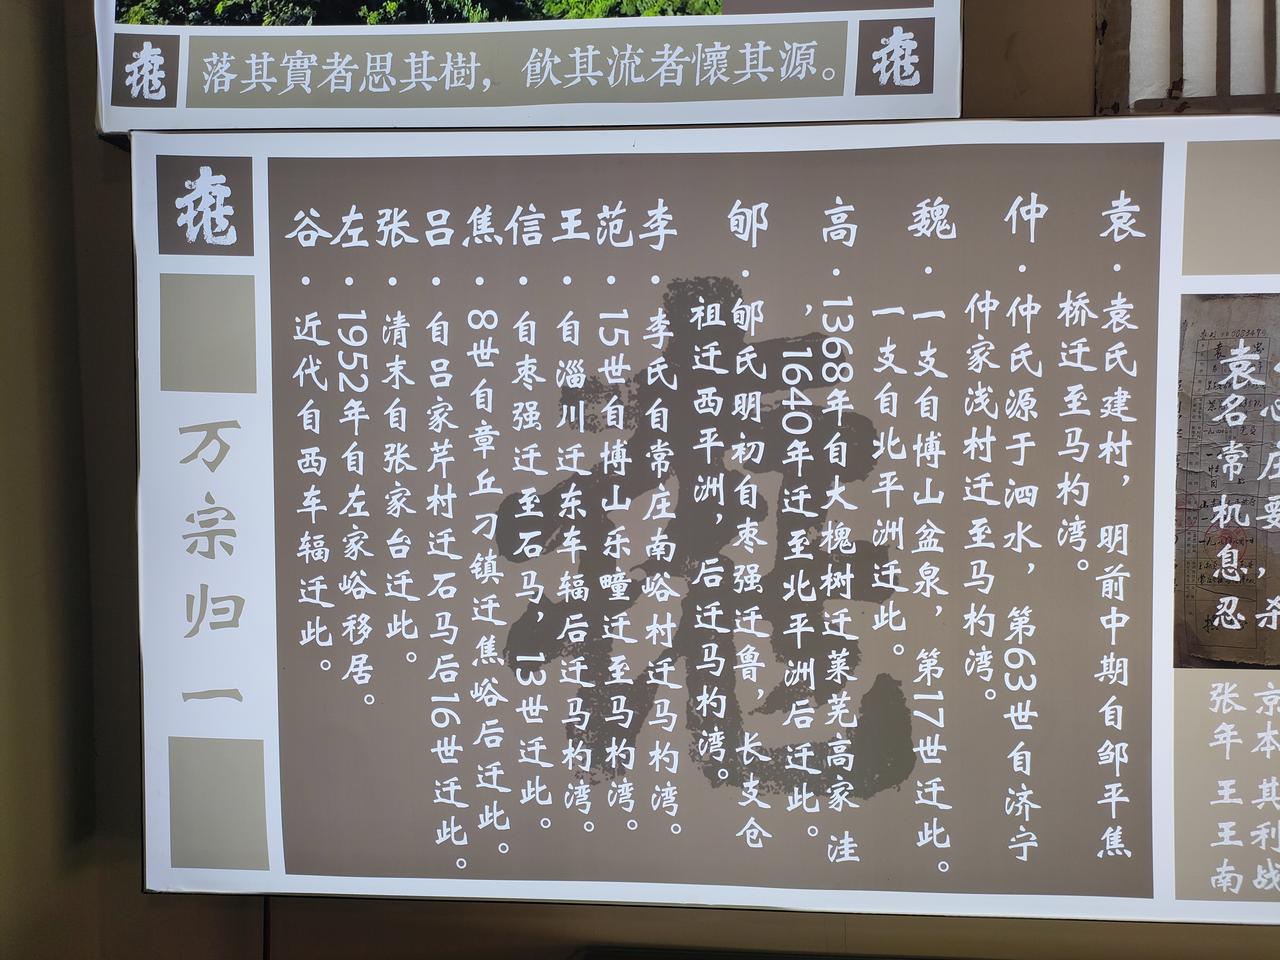 落其實者思其樹，飲其流者懷其源。
万宗归一
袁·袁氏建村，明前中期自邹平焦
桥迁至马杓湾。
仲·仲氏源于泗水，第63世自济宁
仲家浅村迁至马杓湾。
魏·一支自博山盆泉，第17世迁此。
一支自北平洲迁此。
高·1368年自大槐树迁莱芜高家洼
，1640年迁至北平洲后迁此。
郇·郇氏明初自枣强迁鲁，长支仓
祖迁西平洲，后迁马杓湾。
李·李氏自常庄南峪村迁马杓湾。
范·15世自博山乐疃迁至马杓湾。
王·自淄川迁东车辐后迁马杓湾。
信·自枣强迁至石马，13世迁此。
焦·8世自章丘刁镇迁焦峪后迁此。
吕·自吕家芹村迁石马后16世迁此。
张·清末自张家台迁此。
左·1952年自左家峪移居。
谷·近代自西车辐迁此。
袁名常机息忍
京本 其利战
张年 王王南